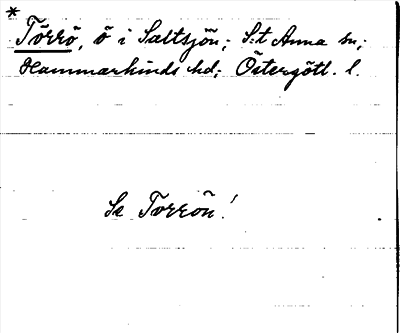 *
Törrö, ö i Saltsjön; S:t Anna sn;
Hammarkinds hd; Östergötl. l.
Se Torrön!